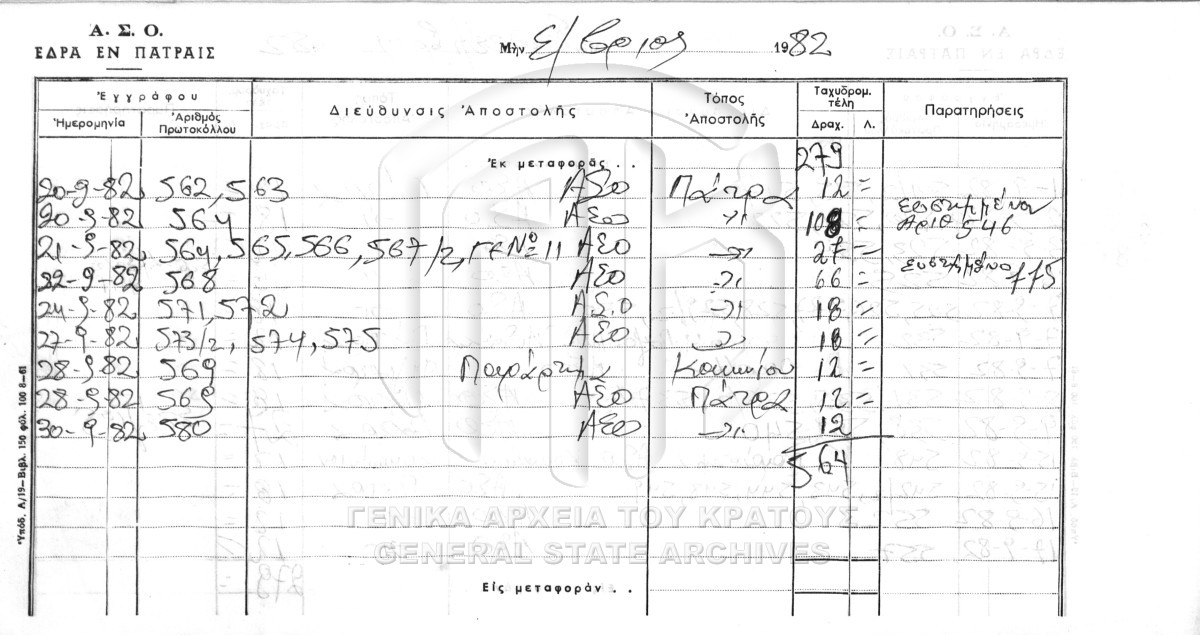 Α. Σ. Ο.
ΕΔΡΑ ΕΝ ΠΑΤΡΑΙΣ
Μὴν Σ/βριος 1982
Ἐγγράφου Διεύθυνσις Ἀποστολῆς Τόπος Ἀποστολῆς Ταχυδρομ. τέλη Παρατηρήσεις
Ἡμερομηνία Ἀριθμὸς Πρωτοκόλλου Δραχ. Λ.
Ἐκ μεταφορᾶς . . 279
20-9-82 562, 563 ΑΣΟ Πάτρα 12 =
20-9-82 564 ΑΣΟ -〃- 108 = Αριθ 546
21-9-82 564, 565, 566, 567/2, Νο 11 ΑΣΟ -〃- 27 =
22-9-82 568 ΑΣΟ -〃- 66 = 775
24-9-82 571, 572 Α.Σ.Ο -〃- 18 =
27-9-82 573/2, 574, 575 ΑΣΟ -〃- 18 =
28-9-82 569 Παράρτημα 12 =
28-9-82 569 ΑΣΟ Πάτρα 12 =
30-9-82 580 ΑΣΟ -〃- 12
564
Εἰς μεταφοράν . .
Ὑπόδ. Λ/19-Βιβλ. 150 φύλ. 100 8-61
ΓΕΝΙΚΑ ΑΡΧΕΙΑ ΤΟΥ ΚΡΑΤΟΥΣ
GENERAL STATE ARCHIVES